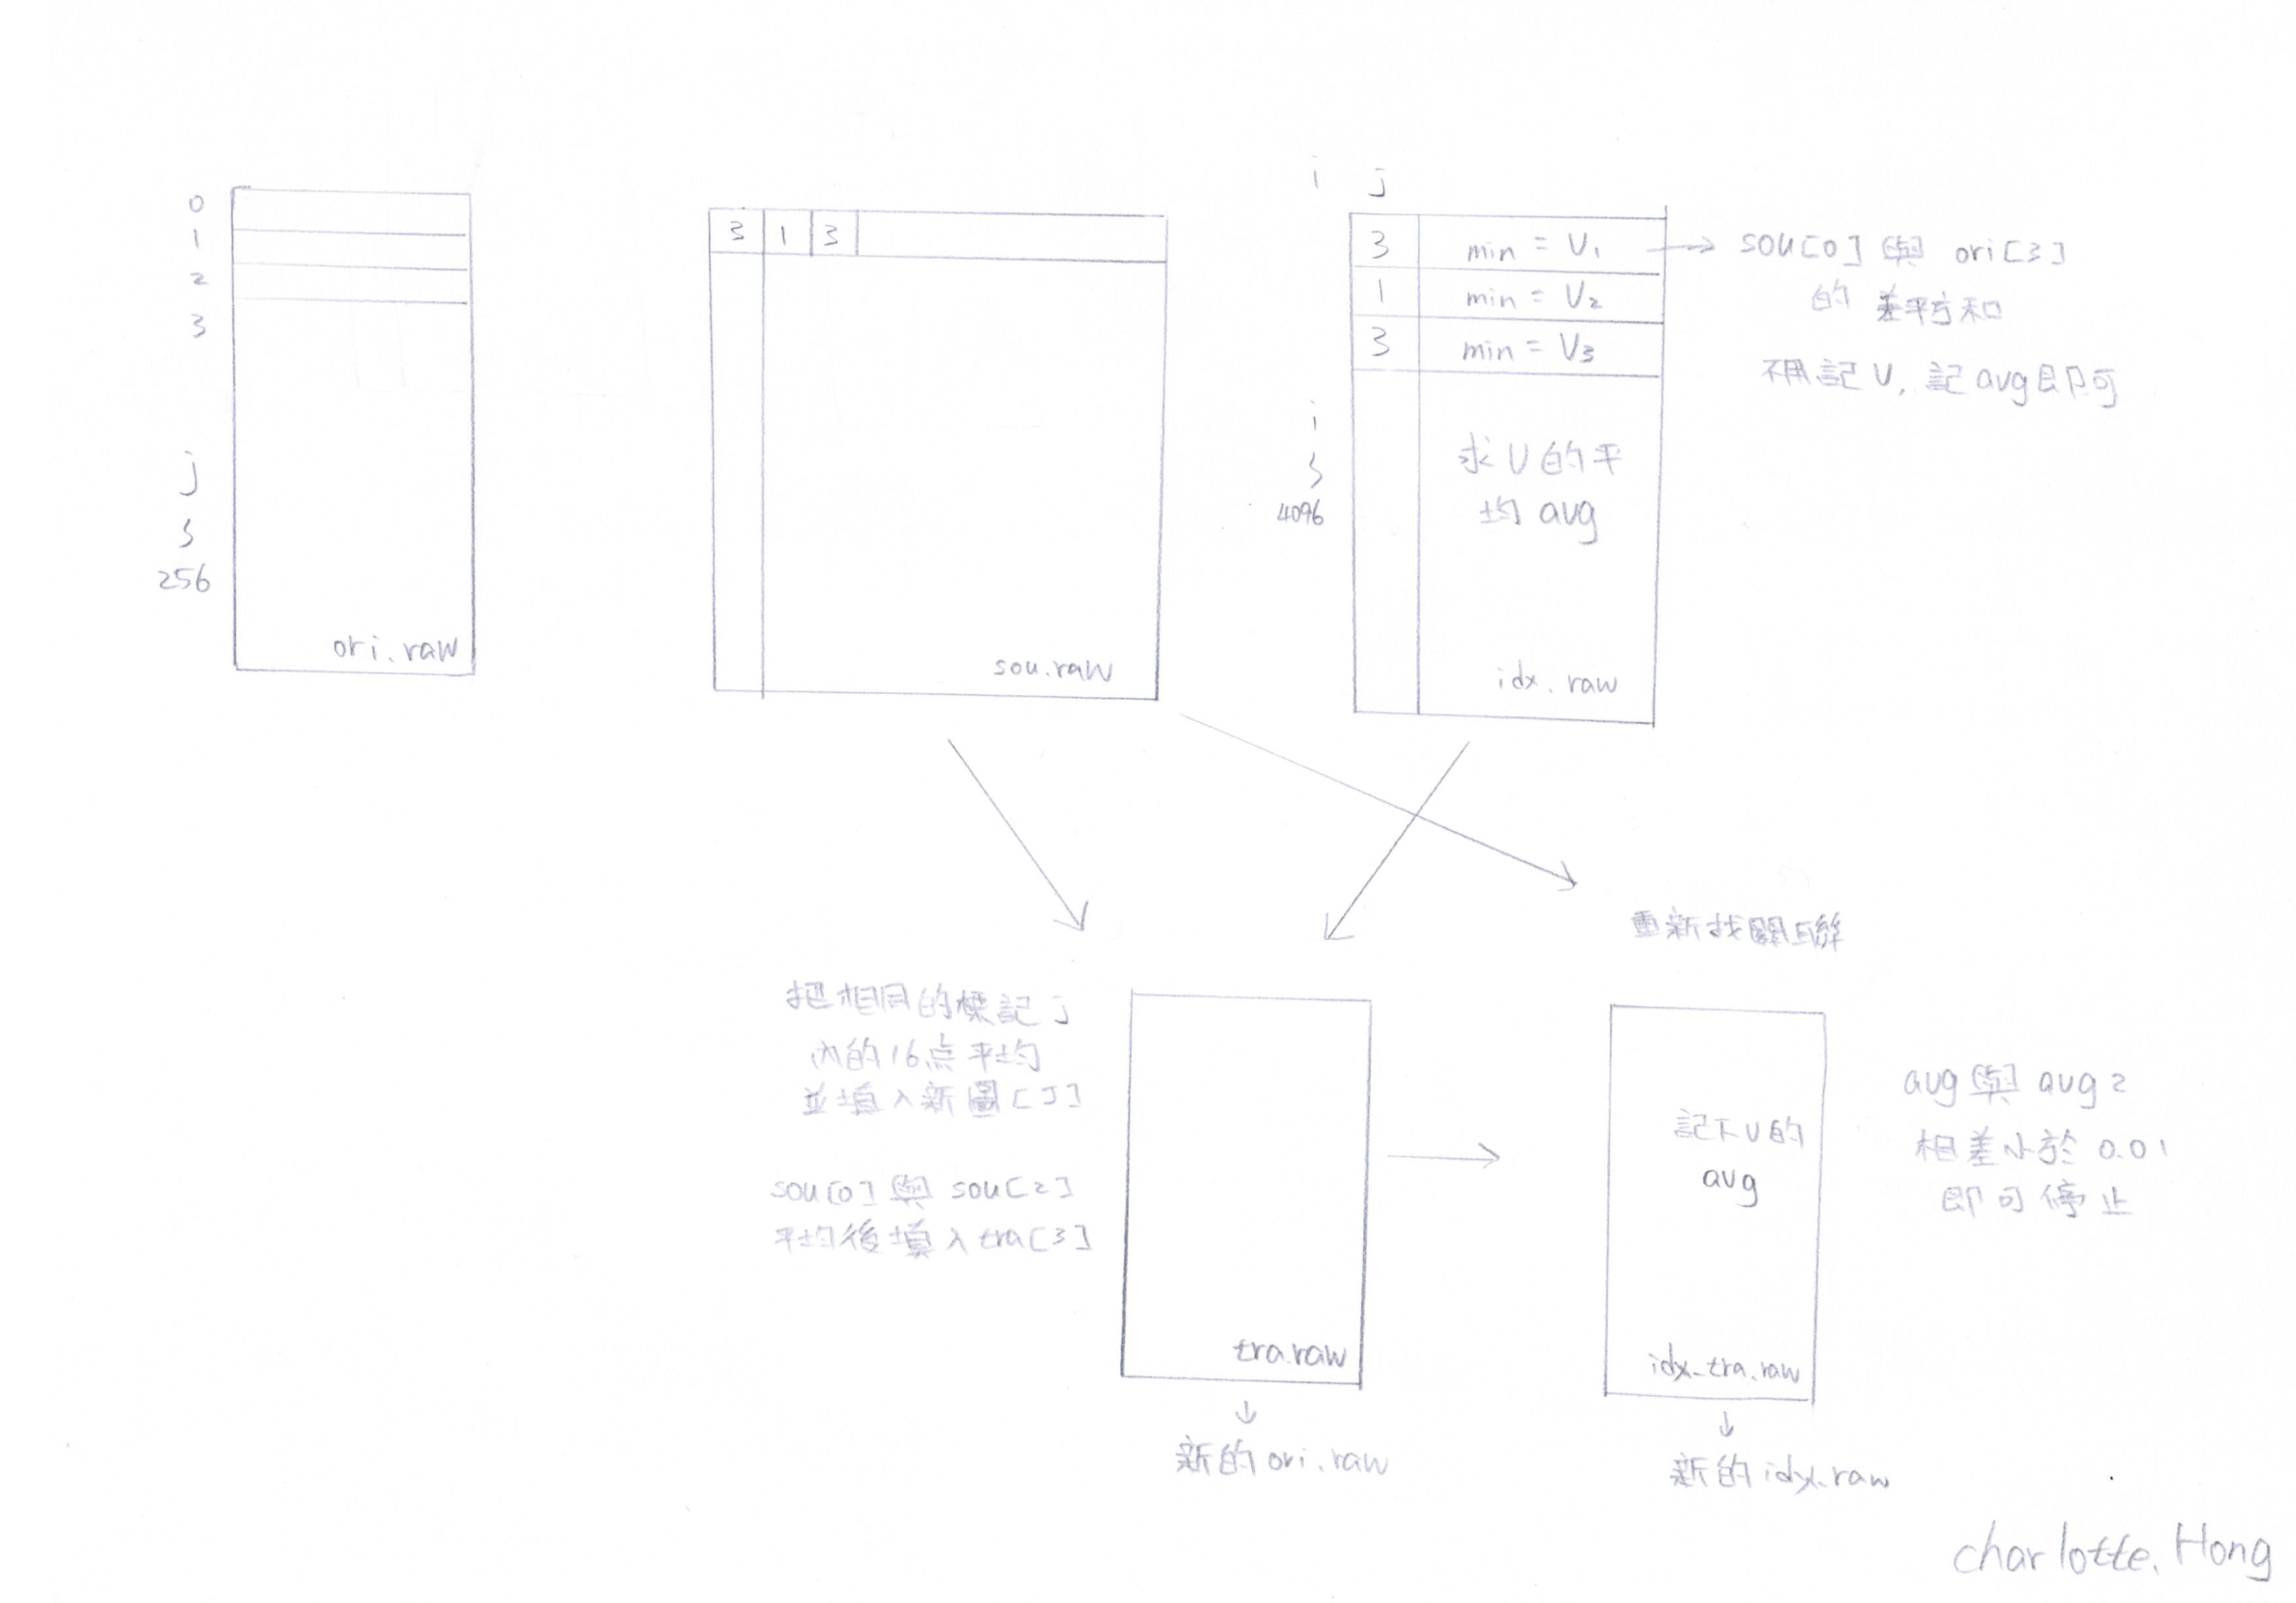 0
1
2
3
j
256
ori.raw
3 1 3
sou.raw
i j
3 min = V₁
1 min = V₂
3 min = V₃
i
4096
求 V 的平
均 avg
idx.raw
sou[0] 與 ori[3]
的 差平方和
不用記 V, 記 avg 即可
把相同的標記 j
內的16点平均
並填入新圖[J]
sou[0] 與 sou[2]
平均後填入 tra[3]
tra.raw
新的 ori.raw
重新找關聯
記下 V 的
avg
idx_tra.raw
新的 idx.raw
avg 與 avg2
相差小於 0.01
即可停止
charlotte.Hong